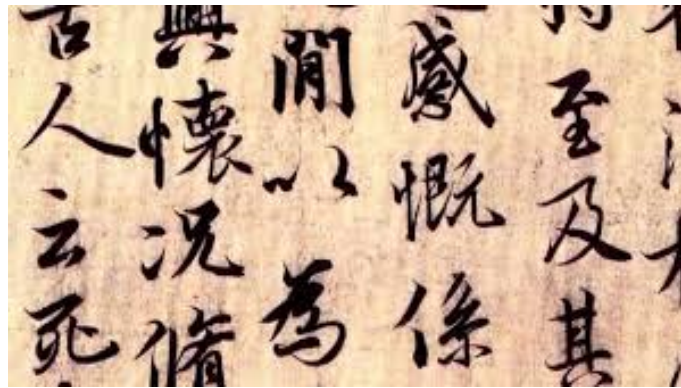 至及其
感慨係
閒以為
興懷況脩
古人云死